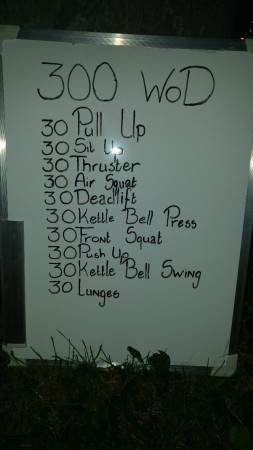 300 WoD
30 Pull Up
30 Sit Up
30 Thruster
30 Air Squat
30 Deadlift
30 Kettle Bell Press
30 Front Squat
30 Push Up
30 Kettle Bell Swing
30 Lunges